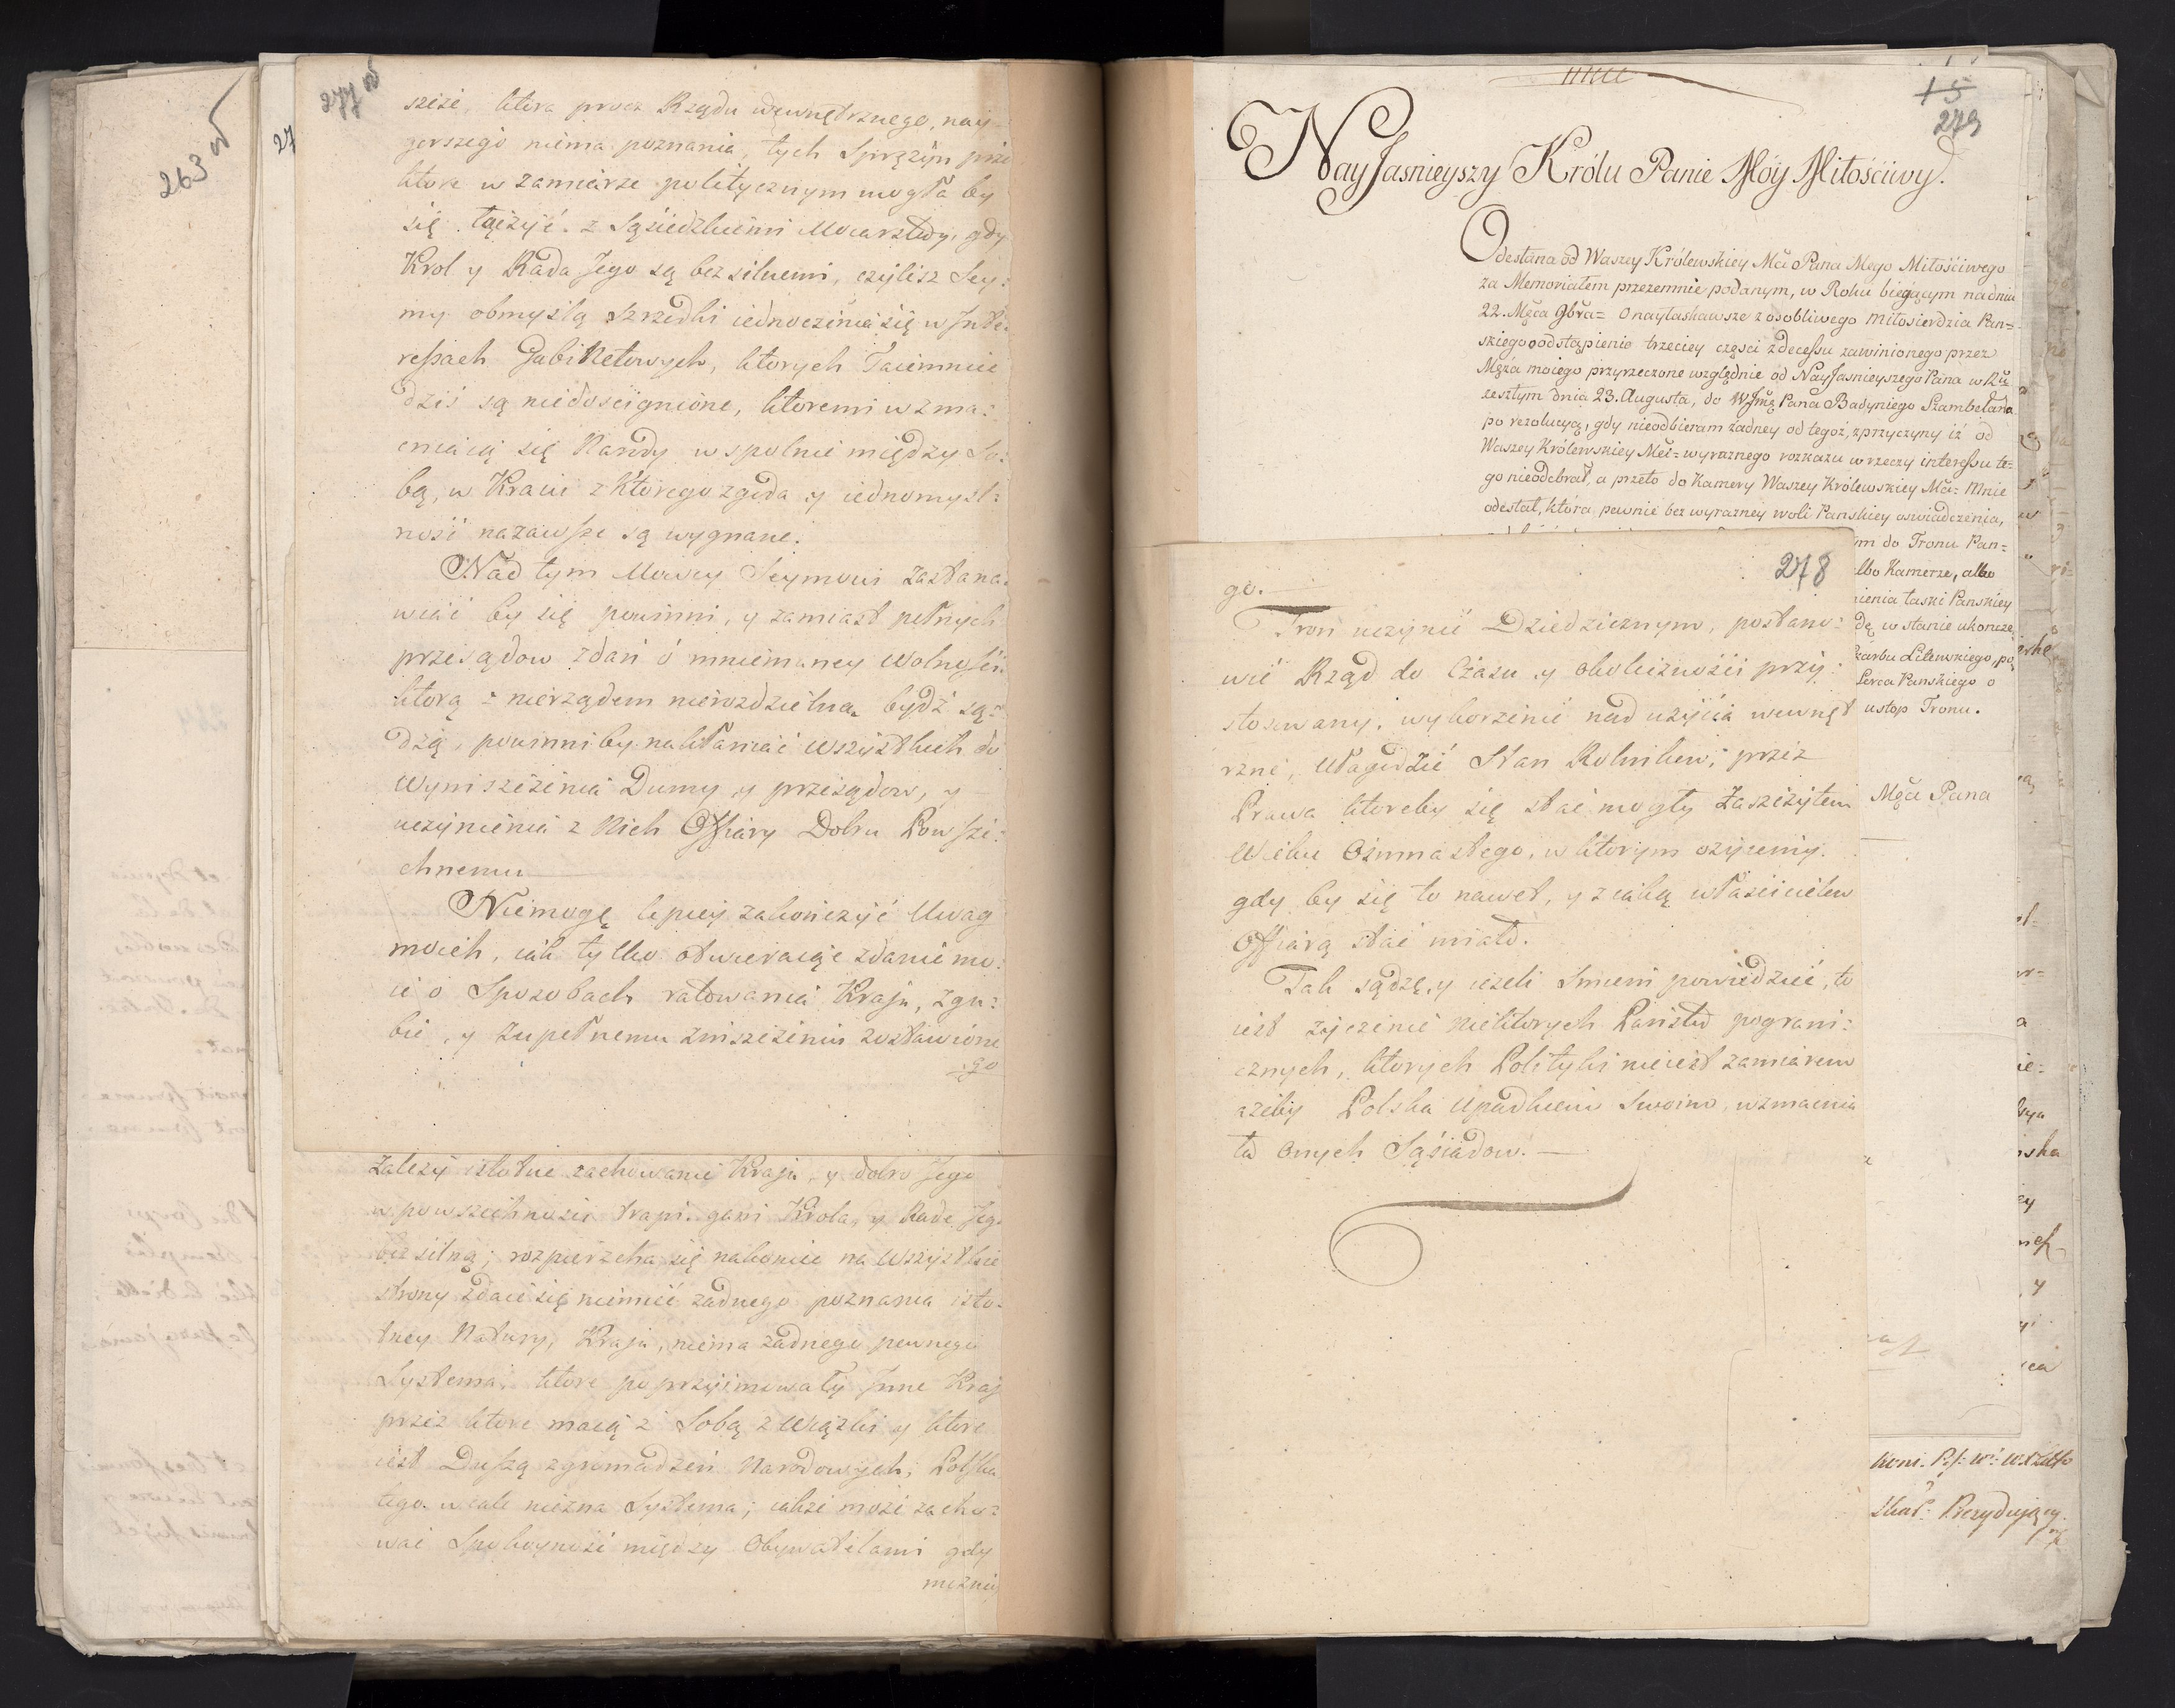 263 v
27
277 v
szeże, ktora procz Rządu wewnętrznego, nay-
gorszego niema poznania, tych Sprężyn prze
ktore w zamiarze politycznym mogła by
się łączyć z Sąsiedzkiemi Mocarstwy, gdy
Krol y Rada Jego są bezsilnemi, czylisz Sey:
my obmyslą szrzodki iednoczenia się w Inte:
ressach Gabinetowych, ktorych Taiemnice
dziś są niedoscignione, ktoremi wzma:
cniaią się Narody wspolnie między So:
bą, w Kraiu z ktorego zgoda y iednomysl:
ność nazawsze są wygnane.
Nad tym Mowcy Seymowi zastana:
wiać by się powinni, y zamiast pełnych
przesądow zdań o mniemaney Wolności
ktorą z nierządem nierozdzielną bydź są:
dzą, powinniby nakłaniać wszystkich do
wyniszczenia Dumy y przesądow, y
uczynienia z Nich Offiary Dobru Powsze:
chnemu
Niemogę lepiey zakończyć Uwag
moich, iak tylko otwieraiąc zdanie mo:
ie o Sposobach ratowania Kraju, zgu:
bie, y zupełnemu zniszczeniu zostawione
:go
zależy istotne zachowanie Kraju, y dobro Jego
w powszechnosci trapi. gani Krola, y Radę Jego
bezsilną; rozpierzcha się nakoniec na wszystkie
strony zdaie się niemieć żadnego poznania isto-
tney Natury, Kraju, niema żadnego pewnego
Systema, ktore poprzyimowały Inne Kraj
przez ktore maią z Sobą związki y ktore
iest Duszą zgromadzeń Narodowych; Polska
tego wcale niezna Systema; iakże może zacho:
wać Spokoyność między Obywatelami gdy
można
15
279
NayJasnieyszy Królu Panie Móy Miłościwy.
Odesłana od Waszey Królewskiey Mci Pana Mego Miłościwego
za Memoriałem przezemnie podanym, w Roku bieżącym na dniu
22. Mca 9bra= o naylaskawsze z osobliwego miłosierdzia Pan=
skiego odstąpienie trzeciey częsci z decessu zawinionego przez
Męża moiego przyrzeczone względnie od NayJasnieyszego Pana w Rku
zeszłym dnia 23. Augusta, do WJmc Pana Badyniego Szambelana
po rezolucyą, gdy nieodbieram żadney od tegoż, z przyczyny iż od
Waszey Królewskiey Mci= wyraznego rozkazu w rzeczy interessu te=
go nieodebrał, a przeto do Kamery Waszey Królewskiey Mci= mnie
odesłał, która pewnie bez wyrazney woli Panskiey oswiadczenia,
ym do Tronu Pan=
albo Kamerze, albo
nienia łaski Panskiey
dę w stanie ukoncze
Skarbu Litewskiego, po
Serca Panskiego o
u stop Tronu.
Mci Pana
278
go.
Tron uczynić Dziedzicznym, postano:
wić Rząd do Czasu y okoliczności przy:
stosowany, wykorzenić nad użycia wewnęt
rzne, Ułagodzić Stan Rolnikow; przez
Prawa ktoreby się stać mogły Zaszczytem
Wieku Osmnastego, w ktorym ożyiemy.
gdy by się to nawet, y z iaką właścicielow
Offiarą stać miało.
Tak sądzę, y ieżeli Smiem powiedzieć, to
iest życzenie niektorych Państw pograni:
cznych, ktorych Polityki nieiest zamiarem
ażeby Polska Upadkiem Swoim, wzmacnia
ła Onych Sąsiadow.
Skar: Prezydujący